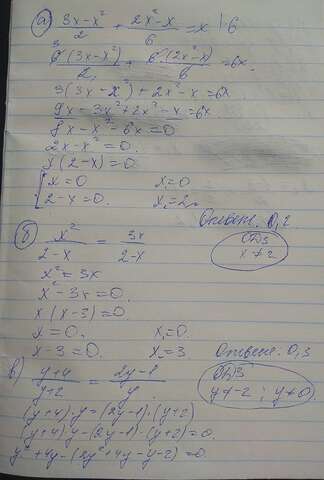 а) (3x-x²)/2 + (2x²-x)/6 = x |·6
6·(3x-x²)/2 + 6·(2x²-x)/6 = 6x.
3(3x-x²)+2x²-x=6x
9x-3x²+2x²-x=6x
8x-x²-6x=0
2x-x²=0.
x(2-x)=0
[x=0 x₁=0
2-x=0. x₂=2.
Ответ. 0, 2
б) x²/(2-x) = 3x/(2-x) ОДЗ x≠2
x²=3x
x²-3x=0.
x(x-3)=0
x=0, x₁=0.
x-3=0. x₂=3 Ответ. 0,3
в) (y+4)/(y+2) = (2y-1)/y ОДЗ y≠-2; y≠0
(y+4)·y=(2y-1)·(y+2)
(y+4)y-(2y-1)·(y+2)=0.
y²+4y-(2y²+4y-y-2)=0